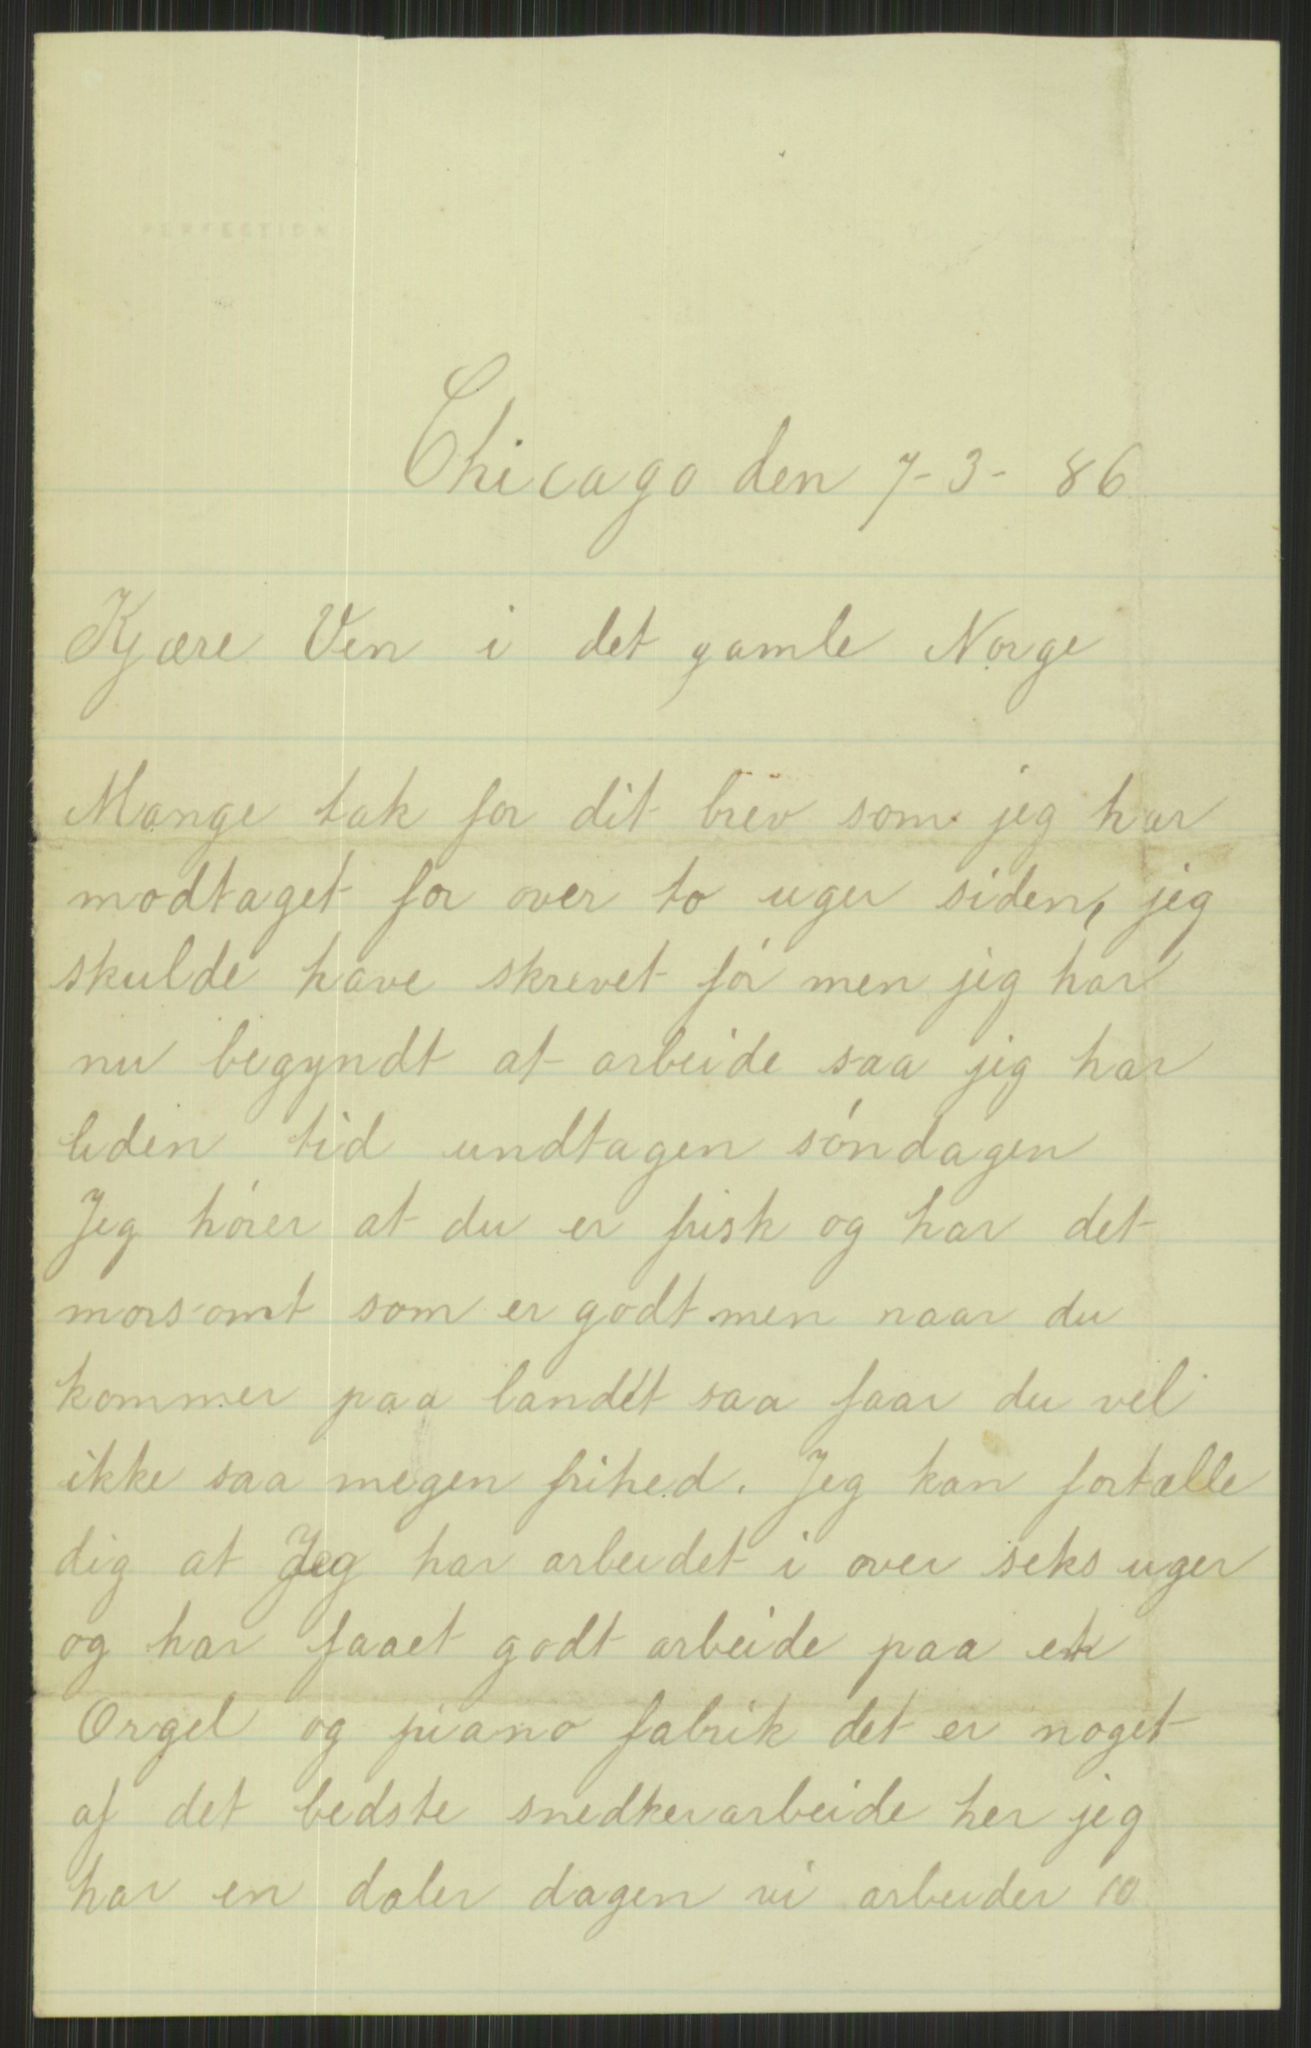 PERFECTION
Chicago den 7-3-86
Kjære Ven i det gamle Norge
Mange tak for dit brev som jeg har
modtaget for over to uger siden, jeg
skulde have skrevet fór men jeg har
nu begyndt at arbeide saa jeg har
liden tid undtagen sóndagen
Jeg hórer at du er frisk og har det
morsomt som er godt men naar du
kommer paa landet saa faar du vel
ikke saa megen frihed. Jeg kan fortælle
dig at Jeg har arbeidet i over seks uger
og har faaet godt arbeide paa en
Orgel og piano fabrik det er noget
af det bedste snedkerarbeide her jeg
har en daler dagen vi arbeider 10